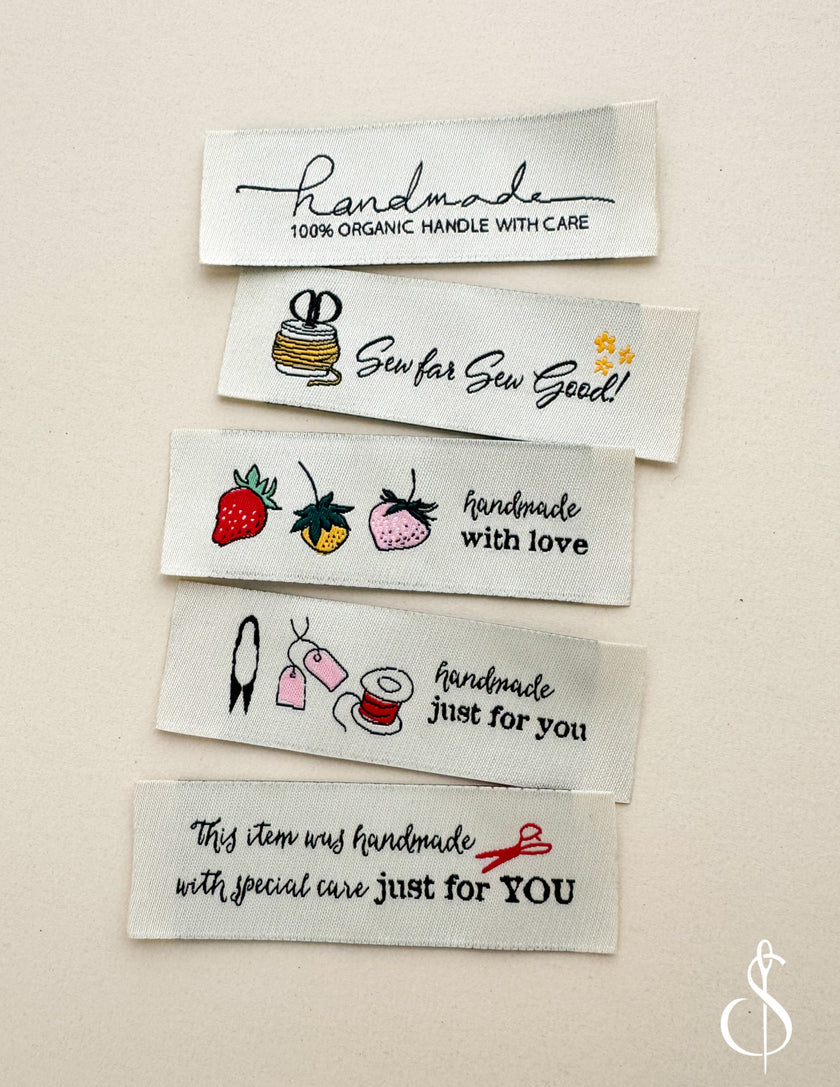 handmade
100% ORGANIC HANDLE WITH CARE
Sew far Sew Good!
handmade
with love
handmade
just for you
This item was handmade
with special care just for YOU
S